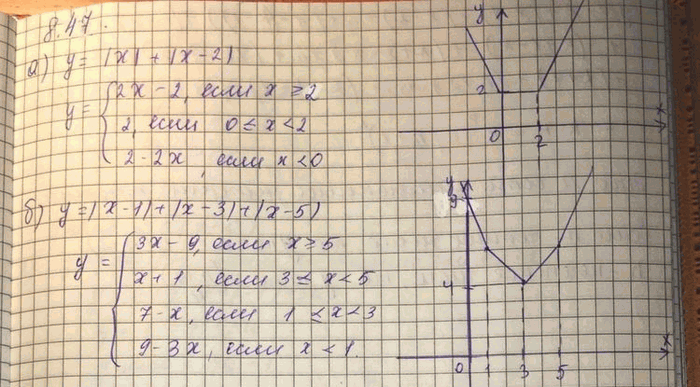 8.47.
а) y = |x| + |x-2|
y = { 2x-2, если x ≥ 2
2, если 0 ≤ x < 2
2-2x, если x < 0
y
2
0 2 x
б) y = |x-1| + |x-3| + |x-5|
y = { 3x-9, если x ≥ 5
x+1, если 3 ≤ x < 5
7-x, если 1 ≤ x < 3
9-3x, если x < 1.
y
9
4
0 1 3 5 x